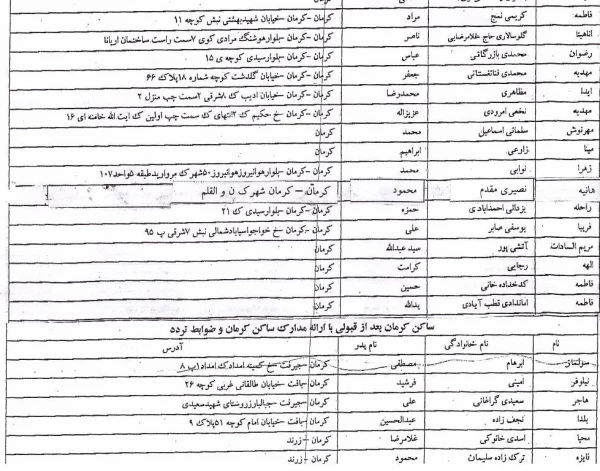 فاطمه کریمی نمج مراد کرمان -کرمان -خیابان شهیدبهشتی نبش کوچه ۱۱
آناهیتا گلوسالاری حاج غلامرضایی ناصر کرمان -کرمان -بلوارهوشنگ مرادی کوی ۷سمت راست ساختمان آریانا
رضوان محمدی بازرگانی عباس کرمان -کرمان -بلوارسیدی کوچه ی ۱۵
مهدیه محمدی جعفر کرمان -کرمان -خیابان گلدشت کوچه شماره ۱۸پلاک ۶۶
آیدا مظاهری محمدرضا کرمان -کرمان -خیابان ادیب ک ۸شرقی ۲سمت چپ منزل ۲
مهدیه نخعی امرودی عزیزاله کرمان -کرمان -خ حکیم ک ۲انتهای ک سمت چپ اولین ک آیت الله خامنه ای ۱۶
مهرنوش سلمانی اسماعیل محمد کرمان
مینا زارعی ابراهیم کرمان
زهرا نوابی محمد کرمان -کرمان -بلوارهوانیروزهوانیروز۵۰شهرک مرواریدطبقه ۵واحد۱۰۷
هانیه نصیری مقدم محمود کرمان – کرمان شهرک ن و القلم
راحله یزدانی احمدابادی حمزه کرمان -کرمان -بلوارسیدی ک ۲۱
فریبا یوسفی صابر علی کرمان -کرمان -خ خواجواسیابادشمالی نبش ۷شرقی پ ۹۵
مریم السادات آتشی پور سید عبدالله کرمان
الهه رجایی کرامت کرمان
فاطمه کدخداده خانی حسین کرمان
فاطمه اماندادی قطب آبادی یدالله کرمان
ساکن کرمان بعد از قبولی با ارائه مدارک ساکن کرمان و ضوابط تردد
نام نام خانوادگی نام پدر آدرس
سولماز ابرهام مصطفی کرمان -جیرفت -خ کمیته امدادک امداد۱پ ۸
نیلوفر امینی فرشید کرمان -بافت -خیابان طالقانی غربی کوچه ۲۶
هاجر سعیدی گراغانی علی کرمان -جیرفت -جبالبارزروستای شهیدسعیدی
یلدا نجف زاده عبدالحسین کرمان -بافت -خیابان امام کوچه ۵۱پلاک ۹
محیا اسدی خانوکی غلامرضا کرمان -زرند
فایزه ترک زاده سلیمان محمود کرمان -زرند